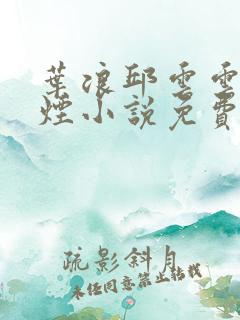 葉浪邱雲雲
煙小說免費
疏影斜月
未任同意禁止轉載